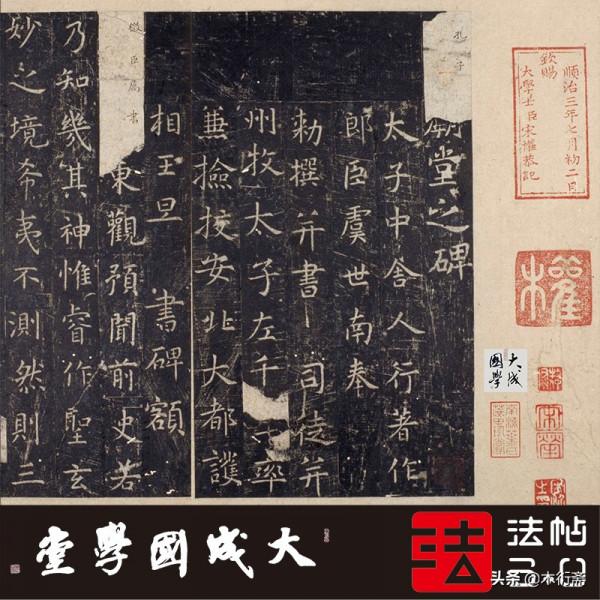 順治三年七月初二日
欽賜
大學士臣宋權恭記
權
大成
國學
孔子
廟堂之碑
太子中舍人行著作
郎臣虞世南奉
勑撰并書 司徒并
州牧太子左千 率
兼撿挍安北大都護
相王旦 書碑額
微臣屬書
東觀預聞前史若
乃知幾其神惟睿作聖玄
妙之境希夷不測然則三
大成國學堂
法帖
头条 @木行斋